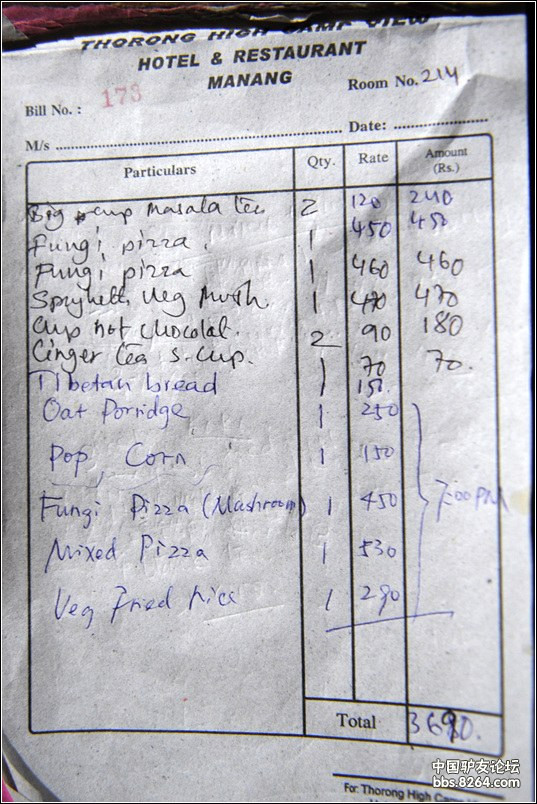 THORONG HIGH CAMP VIEW
HOTEL & RESTAURANT
MANANG
Room No. 214
Bill No. : 173
M/s ........................ Date: ........................
Particulars Qty. Rate Amount (Rs.)
Big cup masala tea 2 120 240
Fungi pizza. 1 450 450
Fungi pizza 1 460 460
Spaghetti veg Mush. 1 470 470
Cup hot chocolat. 2 90 180
Ginger tea s. cup. 1 70 70.
Tibetan bread 1 150.
Oat Porridge 1 250
Pop Corn 1 150
7:00 PM
Fungi Pizza (Mashroom) 1 450
Mixed Pizza 1 530
Veg Fried rice 1 290
Total 3690.
For: Thorong High Camp
中国驴友论坛
bbs.8264.com